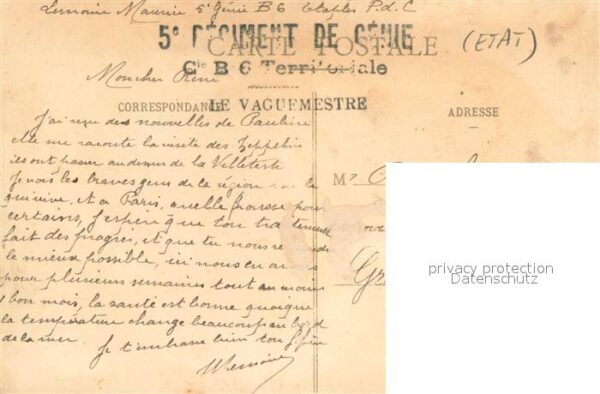 Lemoine Maurice 5e Génie B6 Etaples P.d.C
5e RÉGIMENT DE GÉNIE
CARTE POSTALE
(ETAT)
Cie B 6 Territoriale
Mon cher René
LE VAGUEMESTRE
CORRESPONDANCE
ADRESSE
J'ai reçu des nouvelles de Pauline
elle me raconte la visite des Zeppelins
ils ont passé au dessus de la Villette
Je vois les braves gens de la région sur le
qui vive, et à Paris, quelle frousse pour
certains, j'espère que ton traitement
fait des progrès, et que tu nous
le mieux possible, ici nous en
pour plusieurs semaines tout au moins
1 bon mois, la santé est bonne quoique
la température change beaucoup au bord
de la mer.
Je t'embrasse bien ton
Lemoine
Mr
Gr
privacy protection
Datenschutz